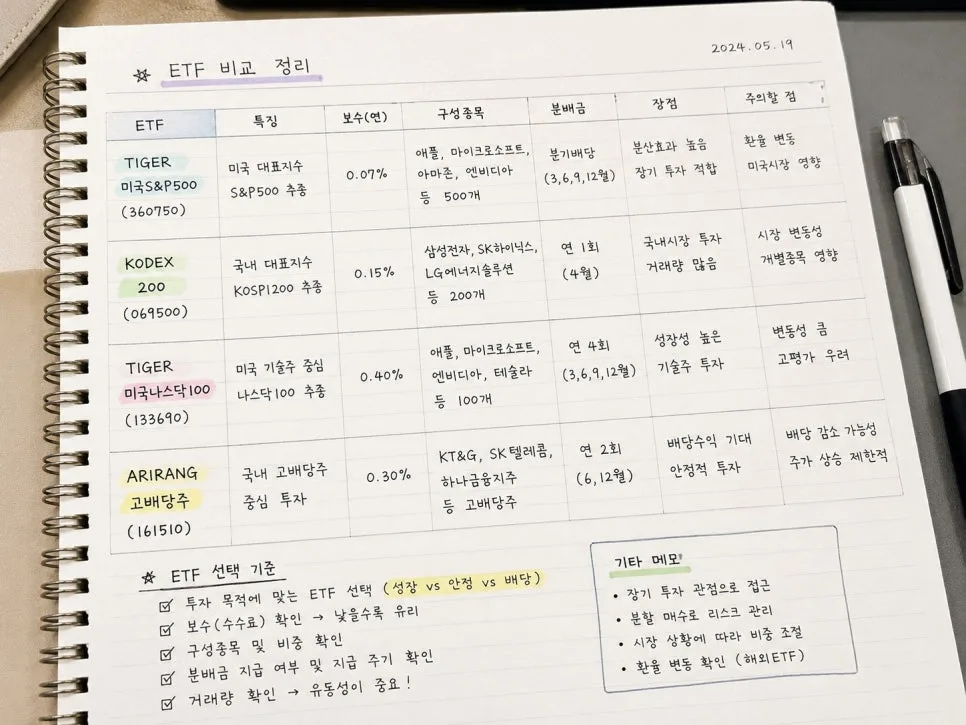 ☆ ETF 비교 정리
2024.05.19
ETF 특징 보수(연) 구성종목 분배금 장점 주의할 점
TIGER
미국S&P500
(360750)
미국 대표지수
S&P500 추종
0.07%
애플, 마이크로소프트,
아마존, 엔비디아
등 500개
분기배당
(3,6,9,12월)
분산효과 높음
장기 투자 적합
환율 변동
미국시장 영향
KODEX
200
(069500)
국내 대표지수
KOSPI200 추종
0.15%
삼성전자, SK하이닉스,
LG에너지솔루션
등 200개
연 1회
(4월)
국내시장 투자
거래량 많음
시장 변동성
개별종목 영향
TIGER
미국나스닥100
(133690)
미국 기술주 중심
나스닥100 추종
0.40%
애플, 마이크로소프트,
엔비디아, 테슬라
등 100개
연 4회
(3,6,9,12월)
성장성 높은
기술주 투자
변동성 큼
고평가 우려
ARIRANG
고배당주
(161510)
국내 고배당주
중심 투자
0.30%
KT&G, SK텔레콤,
하나금융지주
등 고배당주
연 2회
(6,12월)
배당수익 기대
안정적 투자
배당 감소 가능성
주가 상승 제한적
☆ ETF 선택 기준
☑ 투자 목적에 맞는 ETF 선택 (성장 vs 안정 vs 배당)
☑ 보수(수수료) 확인 → 낮을수록 유리
☑ 구성종목 및 비중 확인
☑ 분배금 지급 여부 및 지급 주기 확인
☑ 거래량 확인 → 유동성이 중요!
기타 메모
• 장기 투자 관점으로 접근
• 분할 매수로 리스크 관리
• 시장 상황에 따라 비중 조절
• 환율 변동 확인 (해외ETF)